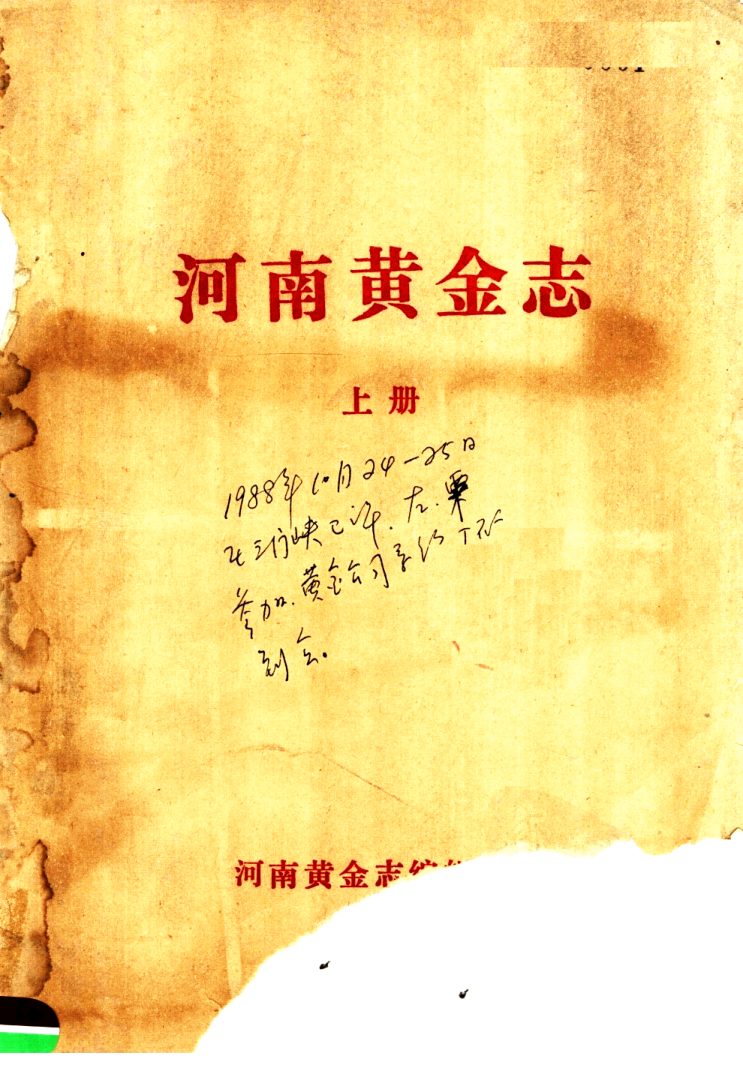 河南黄金志
上册
1988年10月24—25日
在三门峡已评.左.栗
参加.黄金公司
到会.
河南黄金志编